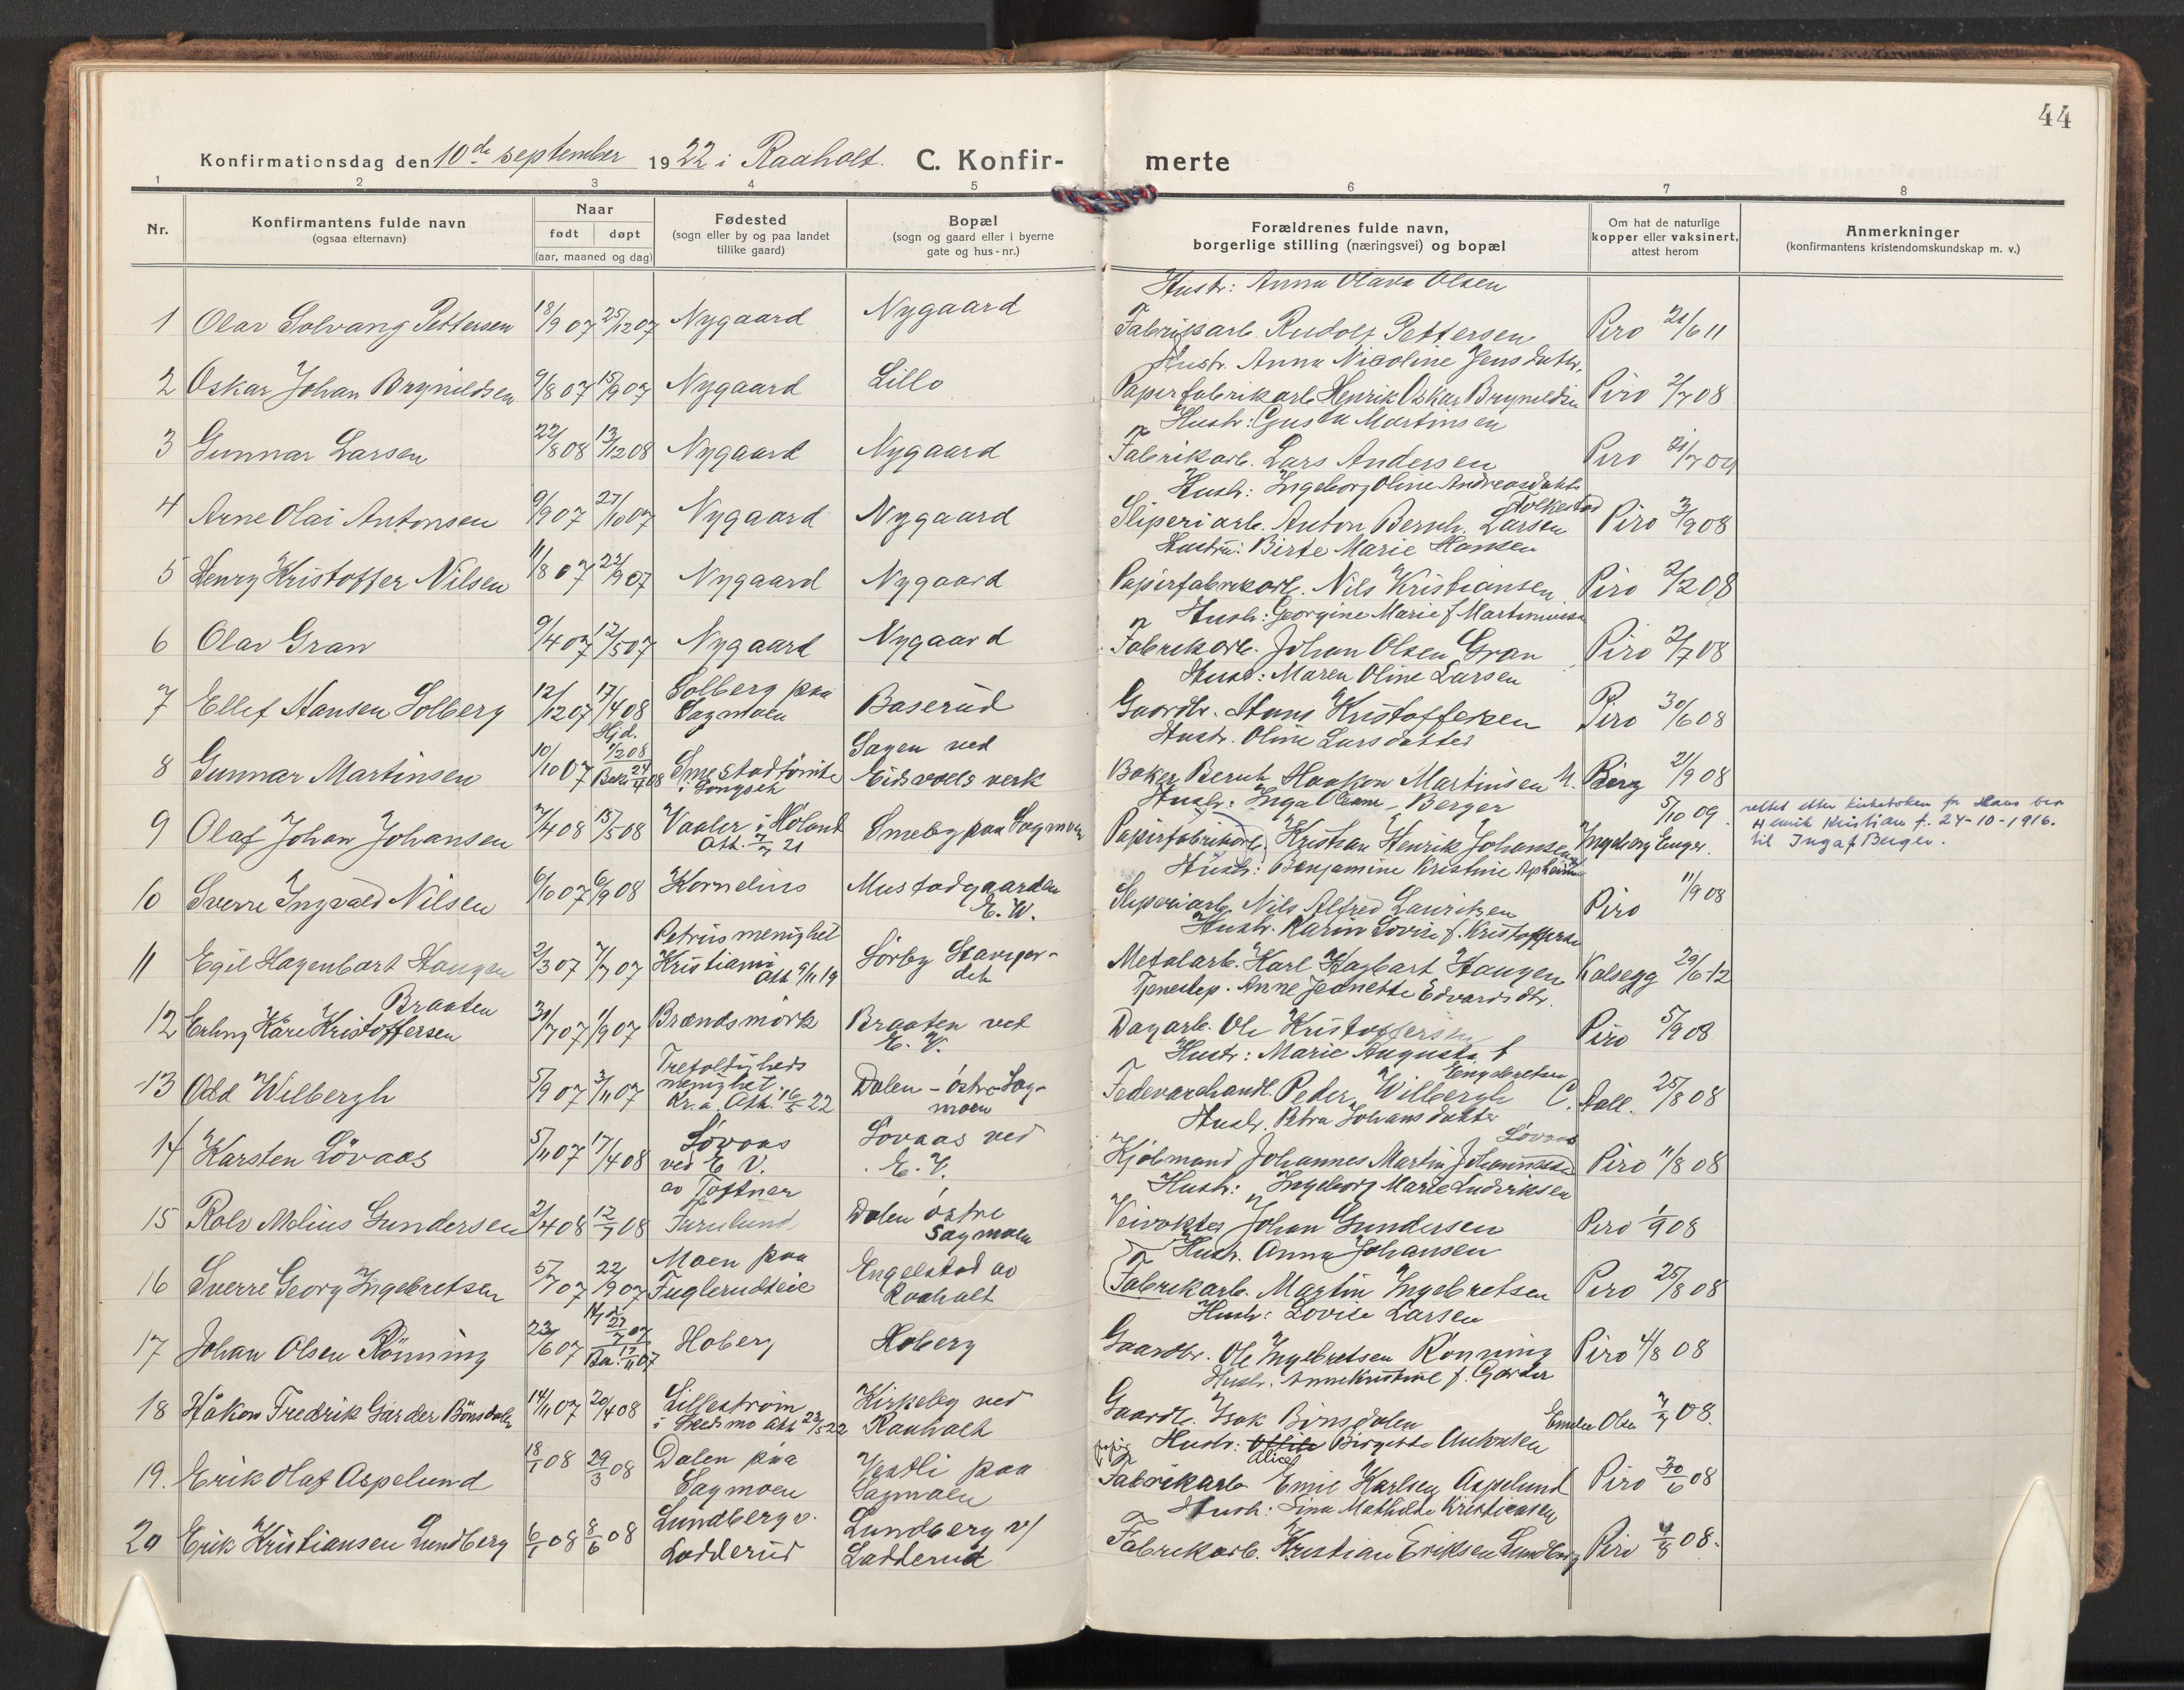 44
Konfirmationsdag den 10de september 1922 i Raaholt. C. Konfir- merte
1 2 3 4 5 6 7 8
Nr. Konfirmantens fulde navn (ogsaa efternavn) Naar født døpt (aar, maaned og dag) Fødested (sogn eller by og paa landet tillike gaard) Bopæl (sogn og gaard eller i byerne gate og hus-nr.) Forældrenes fulde navn, borgerlige stilling (næringsvei) og bopæl Om hat de naturlige kopper eller vaksinert, attest herom Anmerkninger (konfirmantens kristendomskundskap m. v.)
Hustr: Anna Olava Olsen
1 Olav Solvang Pettersen 18/9 07 25/12 07 Nygaard Nygaard Fabrikarb. Rudolf Pettersen Piro 21/6 11
Hustr. Anna Nicoline Jensdatter
2 Oskar Johan Brynildsen 9/8 07 15/9 07 Nygaard Lillo Papirfabrikarb. Henrik Oskar Brynildsen Piro 2/7 08
Hustr: Gusta Martinsen
3 Gunnar Larsen 22/8 08 13/12 08 Nygaard Nygaard Fabrikarb. Lars Andersen Piro 21/7 09
Hustr: Ingeborg Oline Andreasdatter
Folkestad
4 Arne Olai Antonsen 9/9 07 27/10 07 Nygaard Nygaard Sliperiarb. Anton Bernh. Larsen Piro 3/9 08
Hustru: Birte Marie Hansen
5 Henry Kristoffer Nilsen 11/8 07 22/9 07 Nygaard Nygaard Papirfabrikarb. Nils Kristiansen Piro 2/2 08
Hustr: Georgine Marie f. Martiniussen
6 Olav Gran 9/4 07 12/5 07 Nygaard Nygaard Fabrikarb. Johan Olsen Gran Piro 2/7 08
Hustr: Maren Oline Larsen
7 Ellef Hansen Solberg 12/12 07 17/4 08 Solberg paa Sagmoen Baserud Gaardbr. Hans Kristoffersen Piro 30/6 08
Hustr. Oline Larsdatter
8 Gunnar Martinsen 10/10 07 Hjd. 1/2 08 Bekr. 24/4 08 Smestadtømte i Longseth Sagen ved Eidsvolls verk Baker Bernh. Haakon Martinsen M. Berg 21/9 08
Hustr: Inga Oleane Berger
9 Olaf Johan Johansen 7/4 08 15/5 08 Vaaler i Høland Att. 7/7 21 Smeby paa Sagmoen Papirfabrikarb. Kristian Henrik Johansen Ingeborg Enger. 5/10 09
rettet etter kirkeboken for Hans bror
Henrik Kristian f. 24-10-1916.
til Inga f. Berger.
Hustr: Benjamine Kristine
10 Sverre Ingvald Nilsen 6/10 07 6/9 08 Kornelius Mustadgaarden E. W. Sliperiarb. Nils Alfred Lauritzen Piro 11/9 08
Hustr. Karin Lovise f. Kristoffersen
11 Egil Hagenbart Haugen 2/3 07 7/7 07 Petrus menighet Kristiania Att 5/11 19 Sörby Stavger- det Metalarb. Karl Hagbart Haugen Kolsegg 29/6 12
Tjenestep. Anne Jeanette Edvardsdtr.
Braaten
12 Erling Kåre Kristoffersen 31/7 07 1/9 07 Brændsmörk Braaten ved E. V. Dagarb. Ole Kristoffersen Piro 5/9 08
Hustr: Marie Augusta f.
Engebretsen
13 Odd Wilbergh 5/9 07 3/11 07 Trefoldigheds menighet Kr.a. Att. 16/5 22 Dalen - östre Sag- moen Fedevarehandl. Peder Wilbergh C. Aall. 25/8 08
Hustr. Petra Johansdatter
Lövaas
14 Karsten Lövaas 5/11 07 17/4 08 Lövaas ved E V. Lövaas ved E. V. Kjöbmand Johannes Martin Johannessen Piro 11/8 08
Hustr: Ingeborg Marie Ludviksen
15 Rolv Melius Gundersen 2/4 08 12/7 08 av Töftner Furulund Dalen östre Sagmoen Veivokter Johan Gundersen Piro 1/9 08
Hustr. Anna Johansen
16 Sverre Georg Ingebretsen 5/7 07 22/9 07 Moen paa Fuglerudteie Engelstad av Raaholt Fabrikarb. Martin Ingebretsen Piro 25/8 08
Hustr: Lovise Larsen
17 Johan Olsen Rönning 23/6 07 Hjd 27/7 07 Be. 17/11 07 Hoberg Hoberg Gaardbr. Ole Ingebretsen Rönning Piro 4/8 08
Hustr. Anne Kristine f. Garder
18 Håkon Fredrik Garder Bönsdalen 14/11 07 20/4 08 Lilleström i Skedsmo Att 23/5 22 Kirkeby ved Raaholt Gaardb. Isak Bönsdalen Emilie Olsen 7/7 08.
Hustr: Birgitte Antonsen
Alice
19. Erik Olaf Aspelund 18/1 08 29/3 08 Dalen paa Sagmoen Vestli paa Sagmoen Fabrikarb Emil Karlsen Aspelund Piro 30/6 08
Hustr: Lina Mathilde Kristiansen
20 Erik Kristiansen Lundberg 6/1 08 8/6 08 Lundberg v. Ladderud Lundberg v/ Ladderud Fabrikarb. Kristian Eriksen Lundberg Piro 4/8 08.